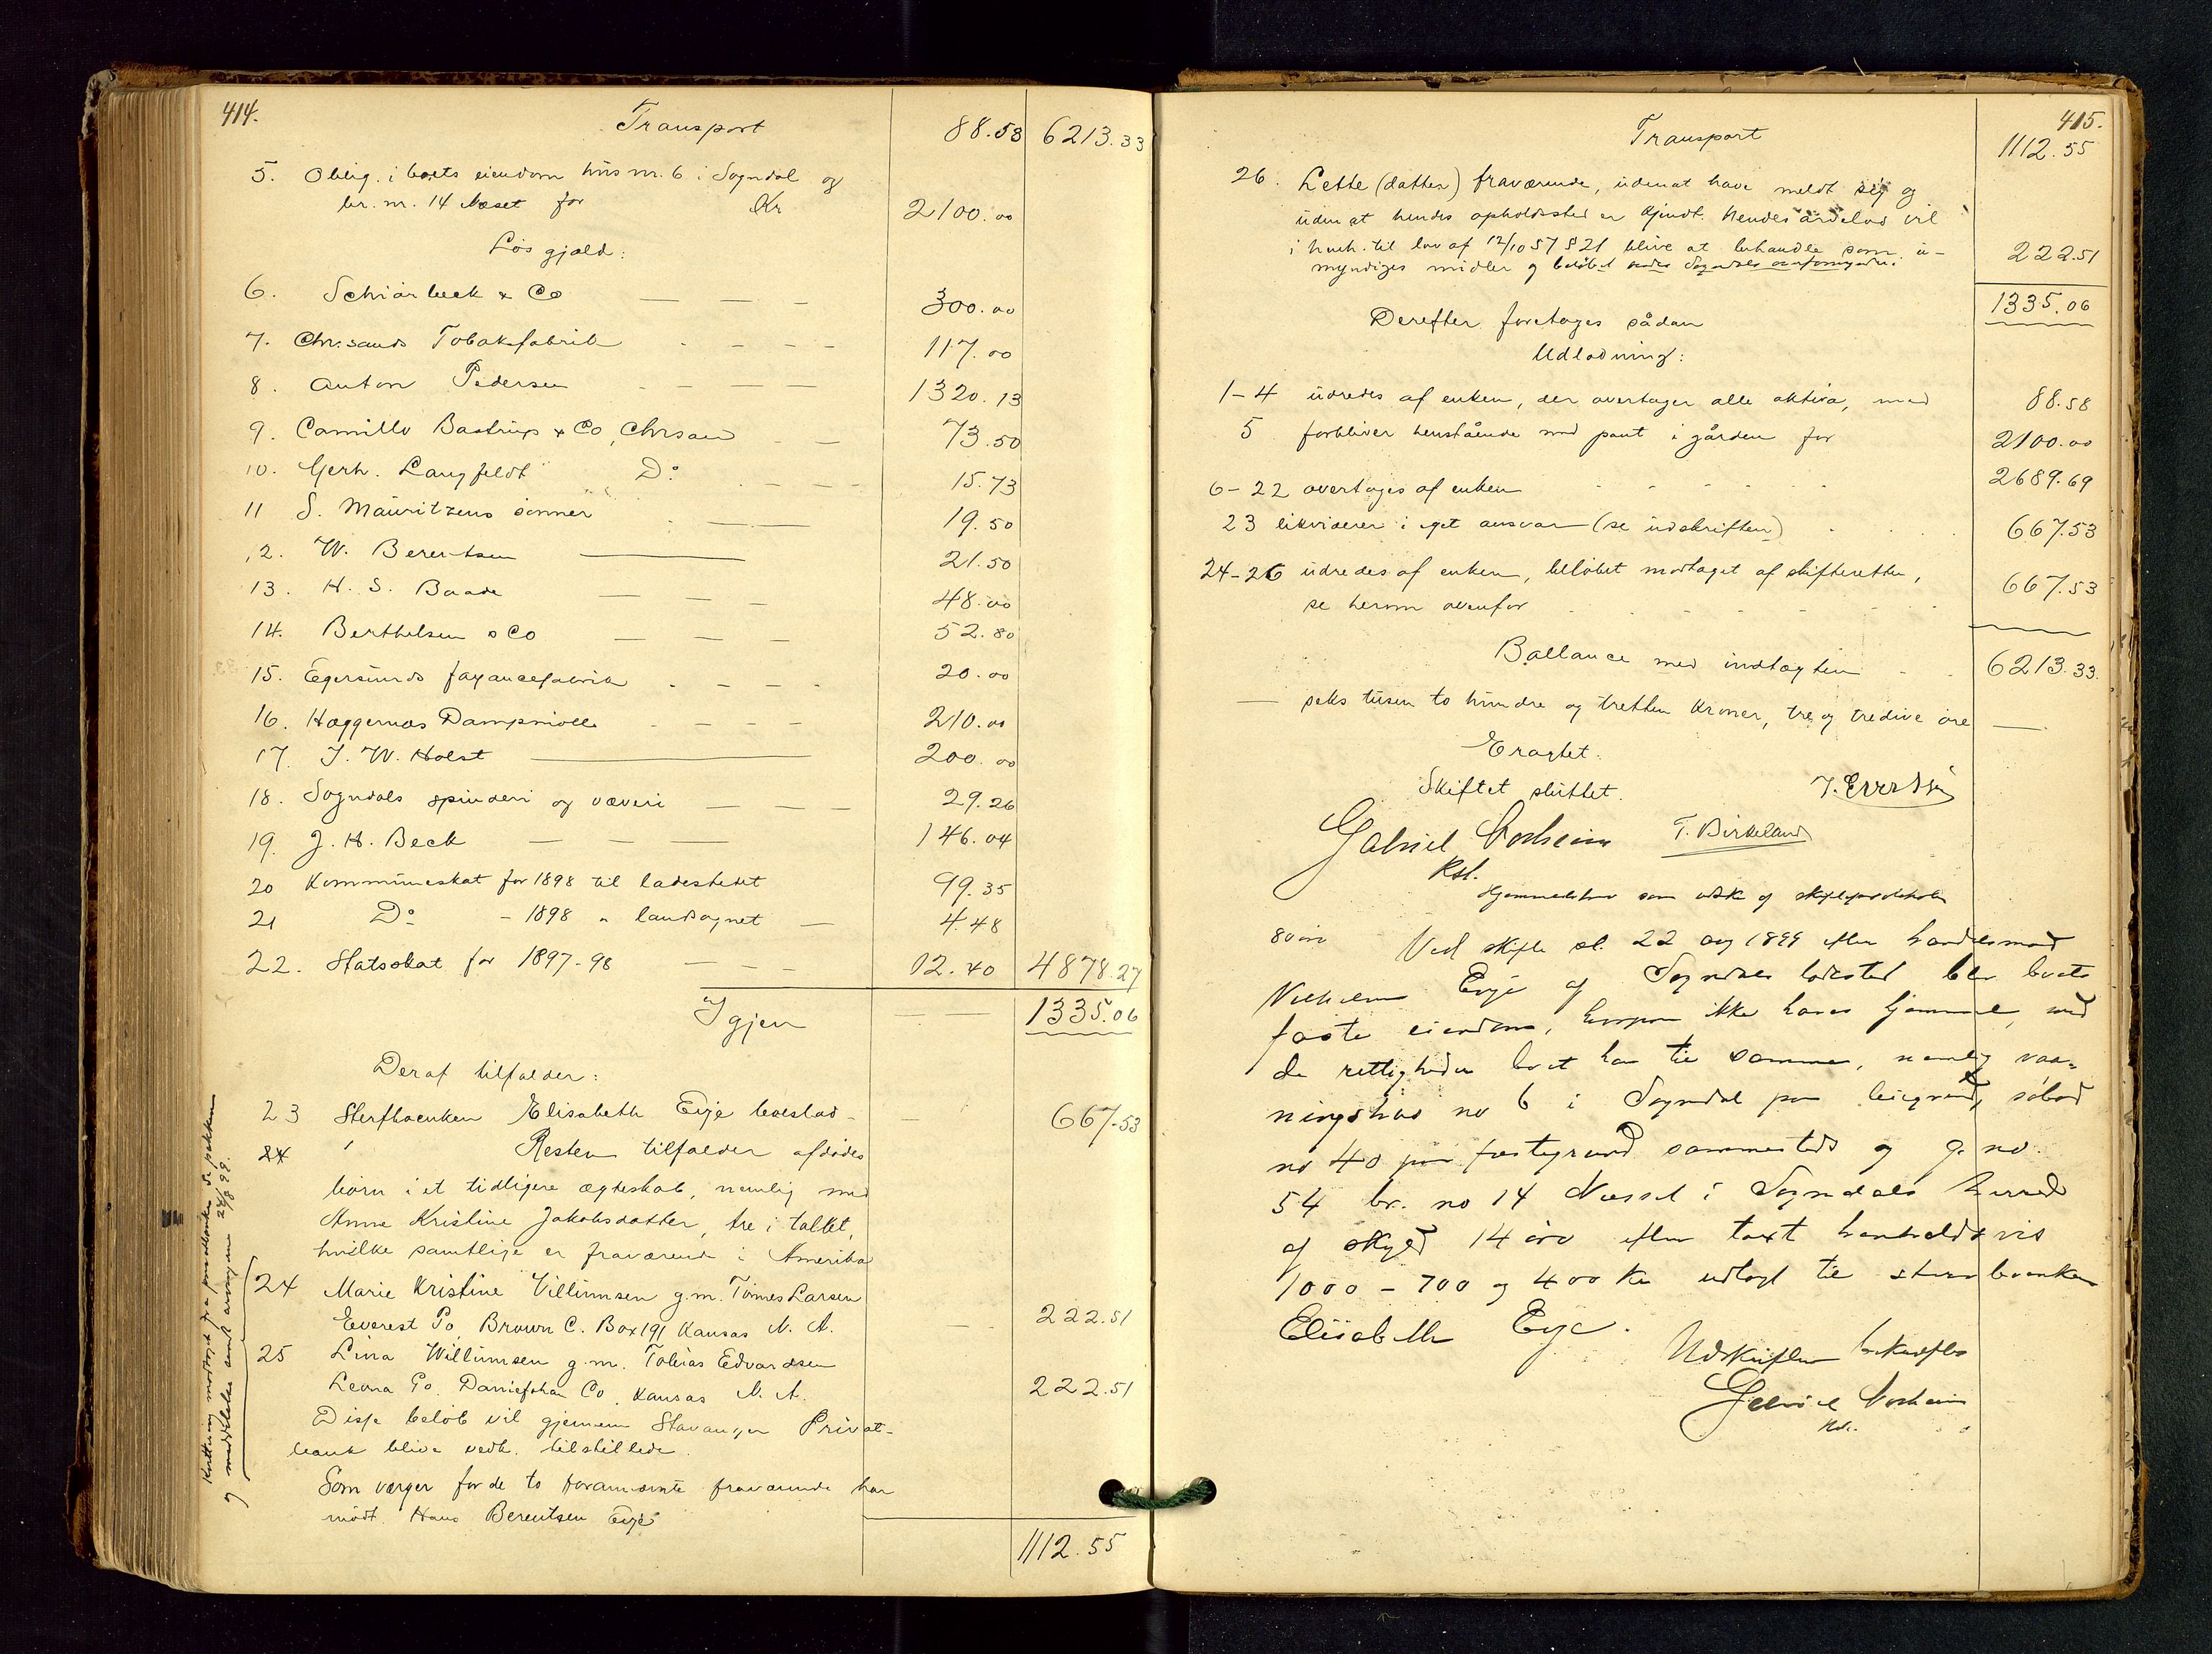 414.
Transport 88.58 6213.33
5. Oblig. i boets eiendom hus nr. 6 i Sogndal og
br. nr. 14 Næset for Kr 2100.00
Løs gjæld:
6. Schiørbeck & Co — — — 300.00
7. Chr.sands Tobaksfabrik - - - - 117.00
8. Anton Pedersen - - - - 1320.13
9. Camillo Bastrup & Co, Chrsand - - 73.50
10. Gerh. Langfeldt Do - - - - 15.73
11 S. Mauritzens sønner - — — 19.50
12. W. Berentsen — 21.50
13. H. S. Baade — — — 48.00
14. Berthelsen & Co — — — 52.80
15. Egersunds fayancefabrik - - - - 20.00
16. Hæggernæs Dampmølle - - - - 210.00
17. J. W. Holst — 200.00
18. Sogndals spinderi og væveri — — — 29.26
19. J. H. Beck — — — 146.04
20 Kommuneskat for 1898 til ladestedet 99.35
21 Do - 1898 " landsognet — 4.48
22. Statsskat for 1897-98 — — — 12.40 4878.27
Igjen — — 1335.06
Deraf tilfalder:
23 Sterfboenken Elisabeth Evje boeslod - — 667.53
24 Resten tilfalder afdødes
børn i et tidligere ægteskab, nemlig med
Anne Kristine Jakobsdatter, tre i tallet,
hvilke samtlige er fraværende i Amerika
24 Marie Kristine Villumsen g.m. Tønnes Larsen
Everest Po, Brown C. Box 191 Kansas N. A. — 222.51
25 Lina Willumsen g.m. Tobias Edvardsen
Leona Po. Co. Kansas N. A. 222.51
Disse beløb vil gjennem Stavanger Privat-
bank blive vedk. tilstillede.
Som værger for de to forannævnte fraværende har
mødt Hans Berentsen Evje
1112.55
Kvittering modtaget fra
og meddelelse sendt 24/8 99.
415.
Transport 1112.55
26. Lette (datter) fraværende, uden at have meldt sig og
uden at hendes opholdssted er kjendt. Hendes arvelod vil
i henh. til lov af 12/10 57 § 21 blive at behandle som u-
myndiges midler og beløbet sendes Sogndals overformynderi. 222.51
1335.06
Derefter foretages sådan
Udlodning:
1-4 udredes af enken, der overtager alle aktiva, med 88.58
5 forbliver henstående med pant i gården for 2100.00
6-22 overtages af enken - - - - - 2689.69
23 likviderer i eget ansvar (se udskriften) - 667.53
24-26 udredes af enken, beløbet modtaget af skifteretten,
se herom ovenfor - - - - - - 667.53
Ballance med indtægten - - 6213.33.
— seks tusen to hundre og tretten kroner, tre og tredive øre —
Eragtet.
Skiftet sluttet.
Gabriel T. Birkeland
Kst.
Hjemmelsbrev som udsk. og skifteprotokol
80 øre Ved skifte sl. 22 aug 1899 efter handelsmand
Vilhelm Evje af Sogndals ladested blev boets
faste eiendom, hvorpaa ikke haves hjemmel, med
de rettigheder boet har til samme, nemlig vaa-
ningshus no 6 i Sogndal paa leiegrund, søbod
no 40 paa festegrund sammesteds og g. no.
54 br. no 14 Næsset i Sogndals herred
af skyld 14 øre efter taxt henholdsvis
1000 - 700 og 400 Kr udlagt til sterfboenken
Elisabeth Evje.
Udskriften bekræftes
Gabriel
Kst.